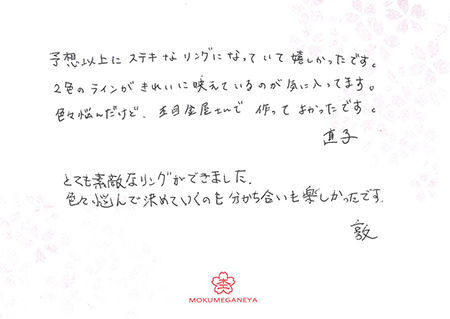 予想以上にステキなリングになっていて嬉しかったです。
2色のラインがきれいに映えているのが気に入ってます。
色々悩んだけど、杢目金屋さんで作ってよかったです。
直子
とても素敵なリングができました。
色々悩んで決めていくのも分かち合いも楽しかったです。
敦
MOKUMEGANEYA